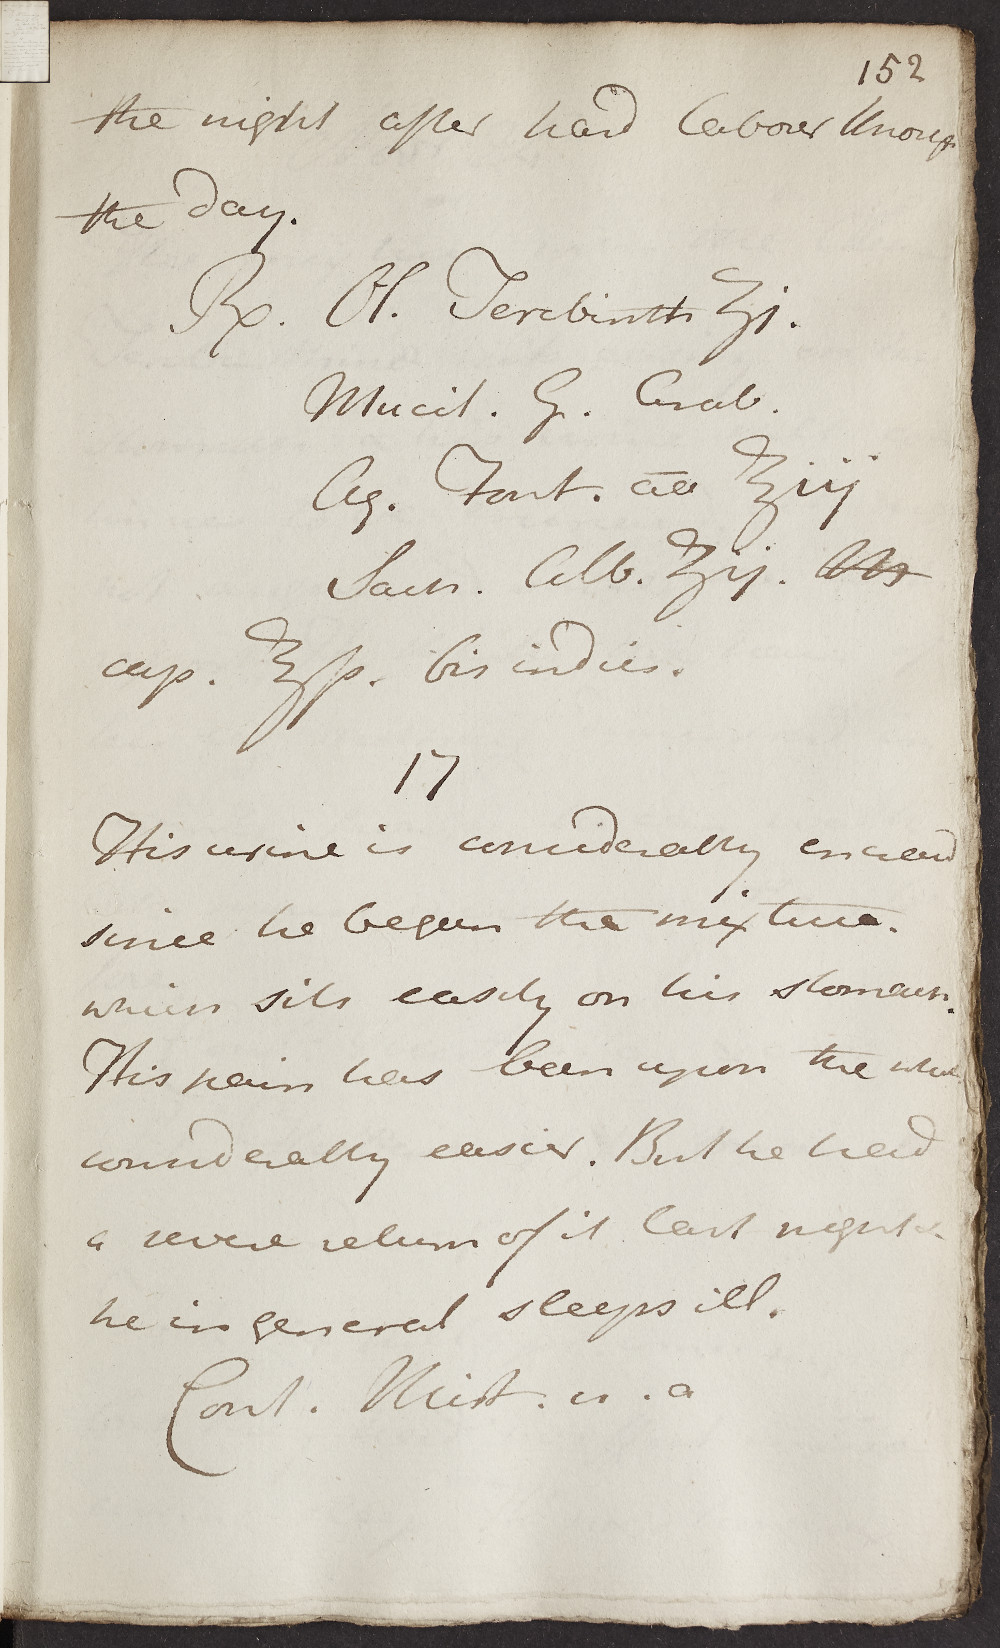 152
the night after hard labour through
the day.
Rx. Ol. Terebinth ʒj.
Mucil. G. Arab.
Aq. Font. āā ℥iij
Sach. Alb. ℥ij. M
cap. ℥ß. bis indies.
17
His urine is considerably encreasd
since he began the mixture.
which sits easily on his stomach.
His pain has been upon the whole
considerably easier. But he had
a severe return of it last night &
he in general sleeps ill.
Cont. Mist. u. a